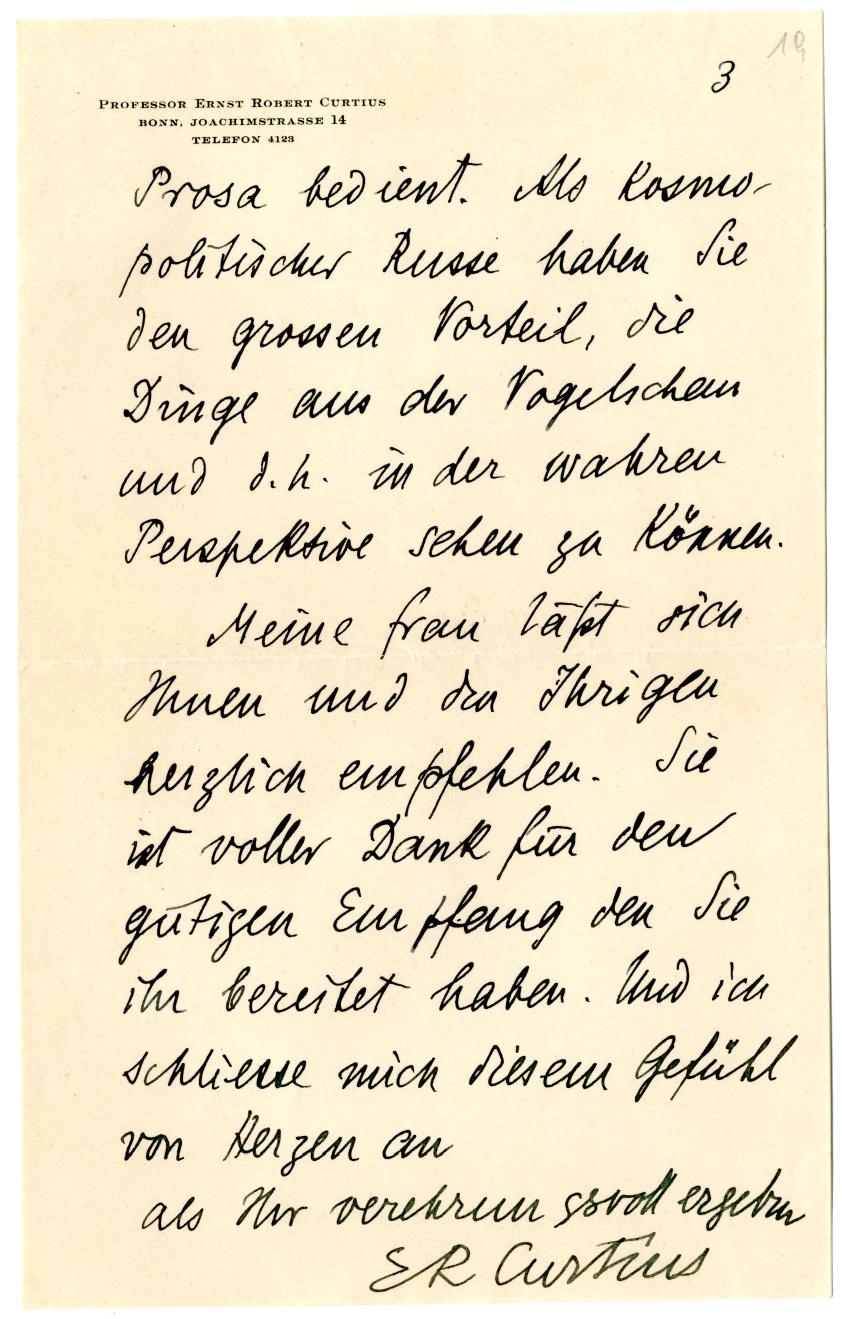 19
3
PROFESSOR ERNST ROBERT CURTIUS
BONN, JOACHIMSTRASSE 14
TELEFON 4123
Prosa bedient. Als Kosmo-
politischer Russe haben Sie
den grossen Vorteil, die
Dinge aus der Vogelschau
und d.h. in der wahren
Perspektive sehen zu können.
Meine Frau läßt sich
Ihnen und den Ihrigen
herzlich empfehlen. Sie
ist voller Dank für den
gütigen Empfang den Sie
ihr bereitet haben. Und ich
schliesse mich diesem Gefühl
von Herzen an
als Ihr verehrungsvoll ergebener
ER Curtius